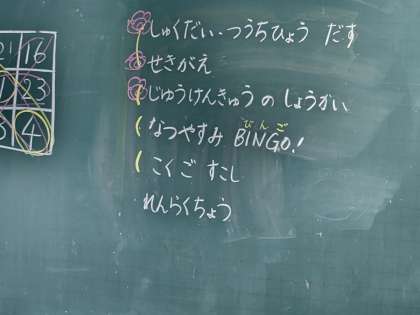 16
23
4
しゅくだい・つうちひょう だす
せきがえ
じゆうけんきゅう の しょうかい
びんご
なつやすみ BINGO!
こくご すこし
れんらくちょう